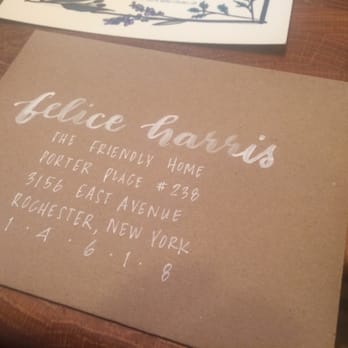 felice harris
THE FRIENDLY HOME
PORTER PLACE #238
3156 EAST AVENUE
ROCHESTER, NEW YORK
1 · 4 · 6 · 1 · 8